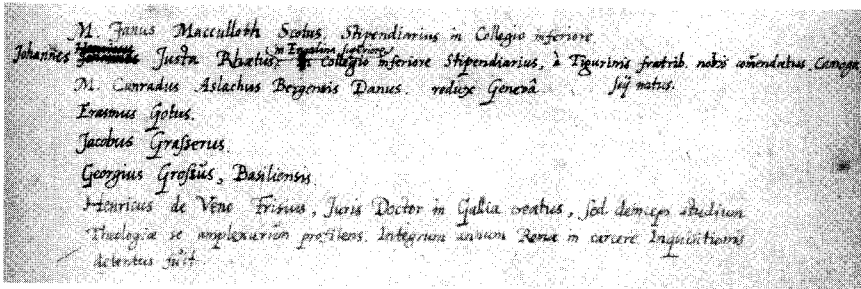 M. Janus Macculloth Scotus. Stipendiarius in Collegio inferiore
in Engadina superiore
Johannes Justa Rhætus, in Collegio inferiore Stipendiarius, à Tigurinis fratrib. nobis com̃endatus.
M. Cunradus Aslachus Bergensis Danus. redux Genevâ natus.
Erasmus Gotus.
Jacobus Grasserus.
Georgius Grossius, Basiliensis
Henricus de Vene Frisius, Juris Doctor in Gallia creatus, sed deinceps studium
Theologiæ se amplexurum profitens. Integrum annum Romæ in carcere Inquisitionis
detentus fuit